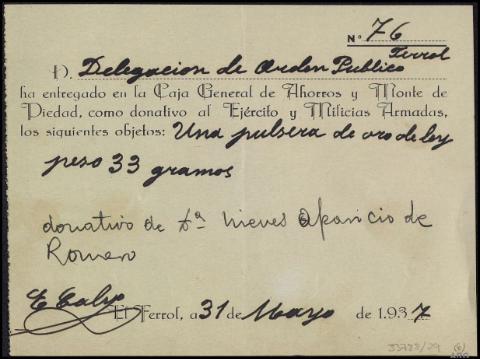 Nº 76
Ferrol
D. Delegacion de Orden Publico
ha entregado en la Caja General de Ahorros y Monte de
Piedad, como donativo al Ejército y Milicias Armadas,
los siguientes objetos: Una pulsera de oro de ley
peso 33 gramos
donativo de Dª Nieves Aparicio de
Romero
E Calvo
El Ferrol, a 31 de Mayo de 1.937
33788/29